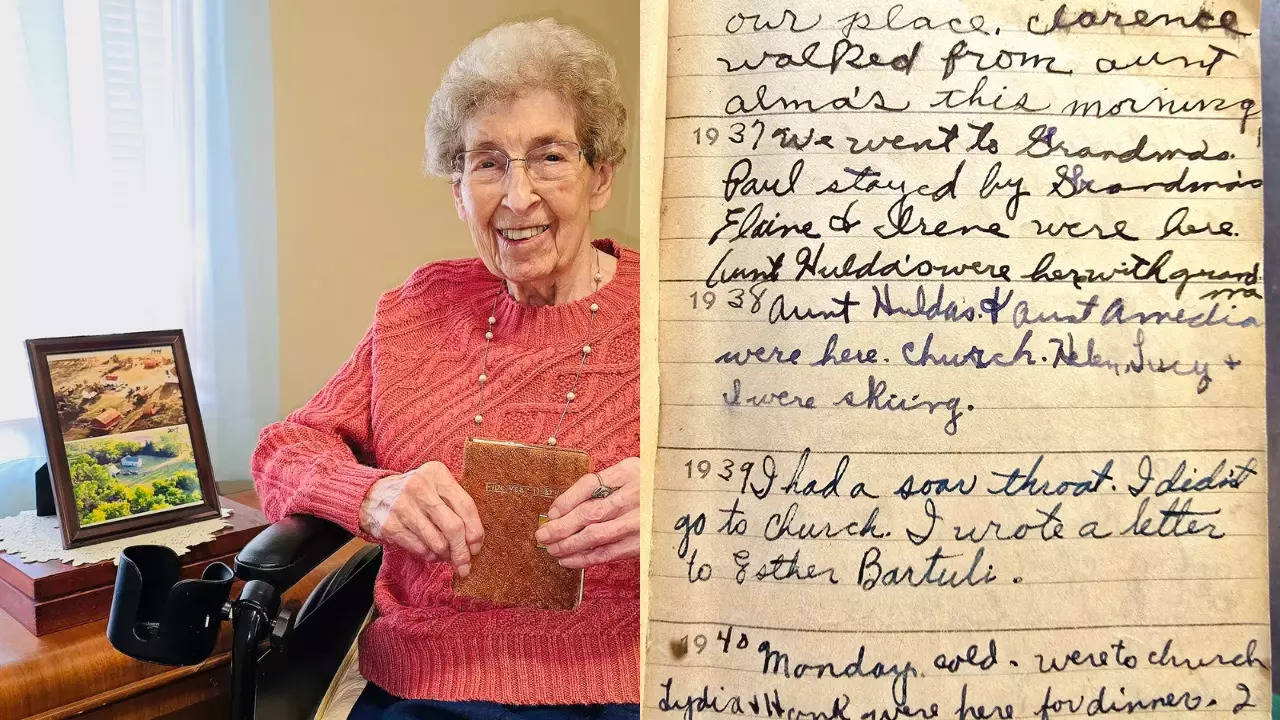 FIVE YEAR DIARY
our place. Clarence
walked from aunt
alma's this morning
1937 We went to Grandma's.
Paul stayed by Grandma's
Elaine & Irene were here.
Aunt Hulda's were her with grand
ma
1938 Aunt Huldas. & Aunt Amedia
were here. Church. Helen, Lucy +
I were skiing.
1939 I had a soar throat. I did'nt
go to church. I wrote a letter
to Esther Bartuli.
1940 Monday. cold. were to church
Lydia & Hank were here for dinner. I